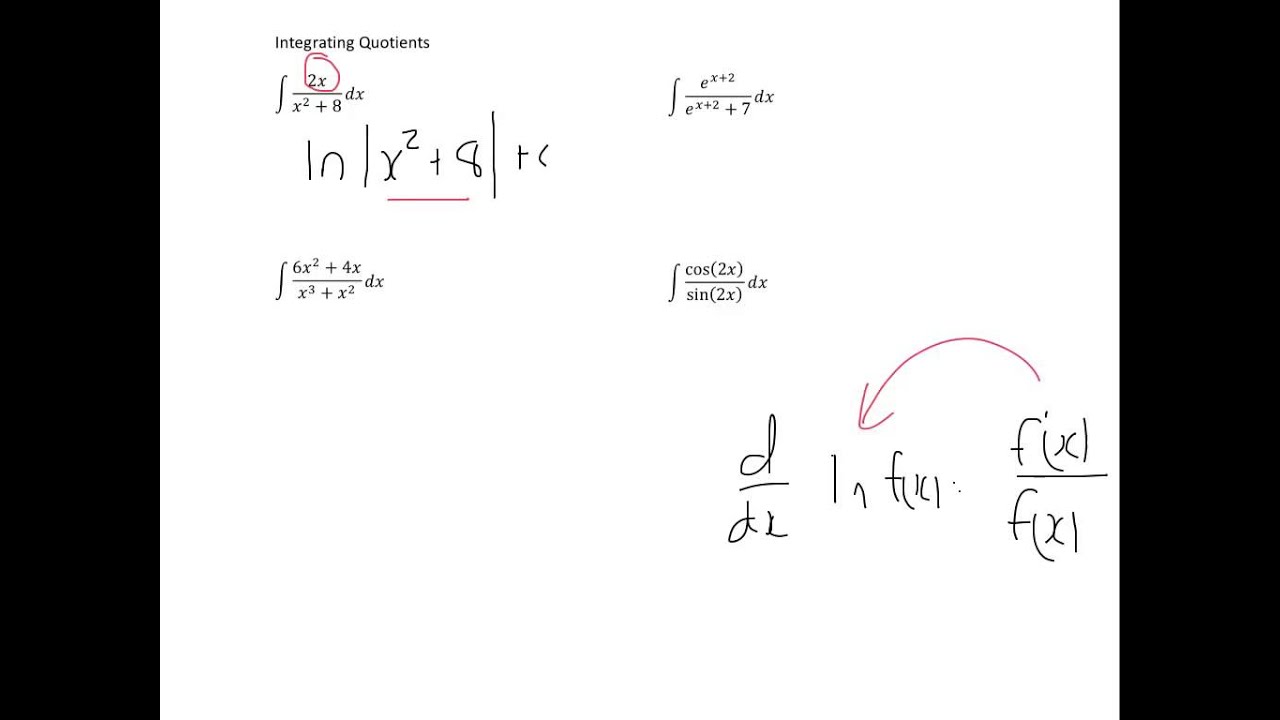 Integrating Quotients
∫ 2x / (x² + 8) dx
∫ e^(x+2) / (e^(x+2) + 7) dx
ln |x² + 8| + c
∫ (6x² + 4x) / (x³ + x²) dx
∫ cos(2x) / sin(2x) dx
d/dx ln f(x) = f'(x) / f(x)